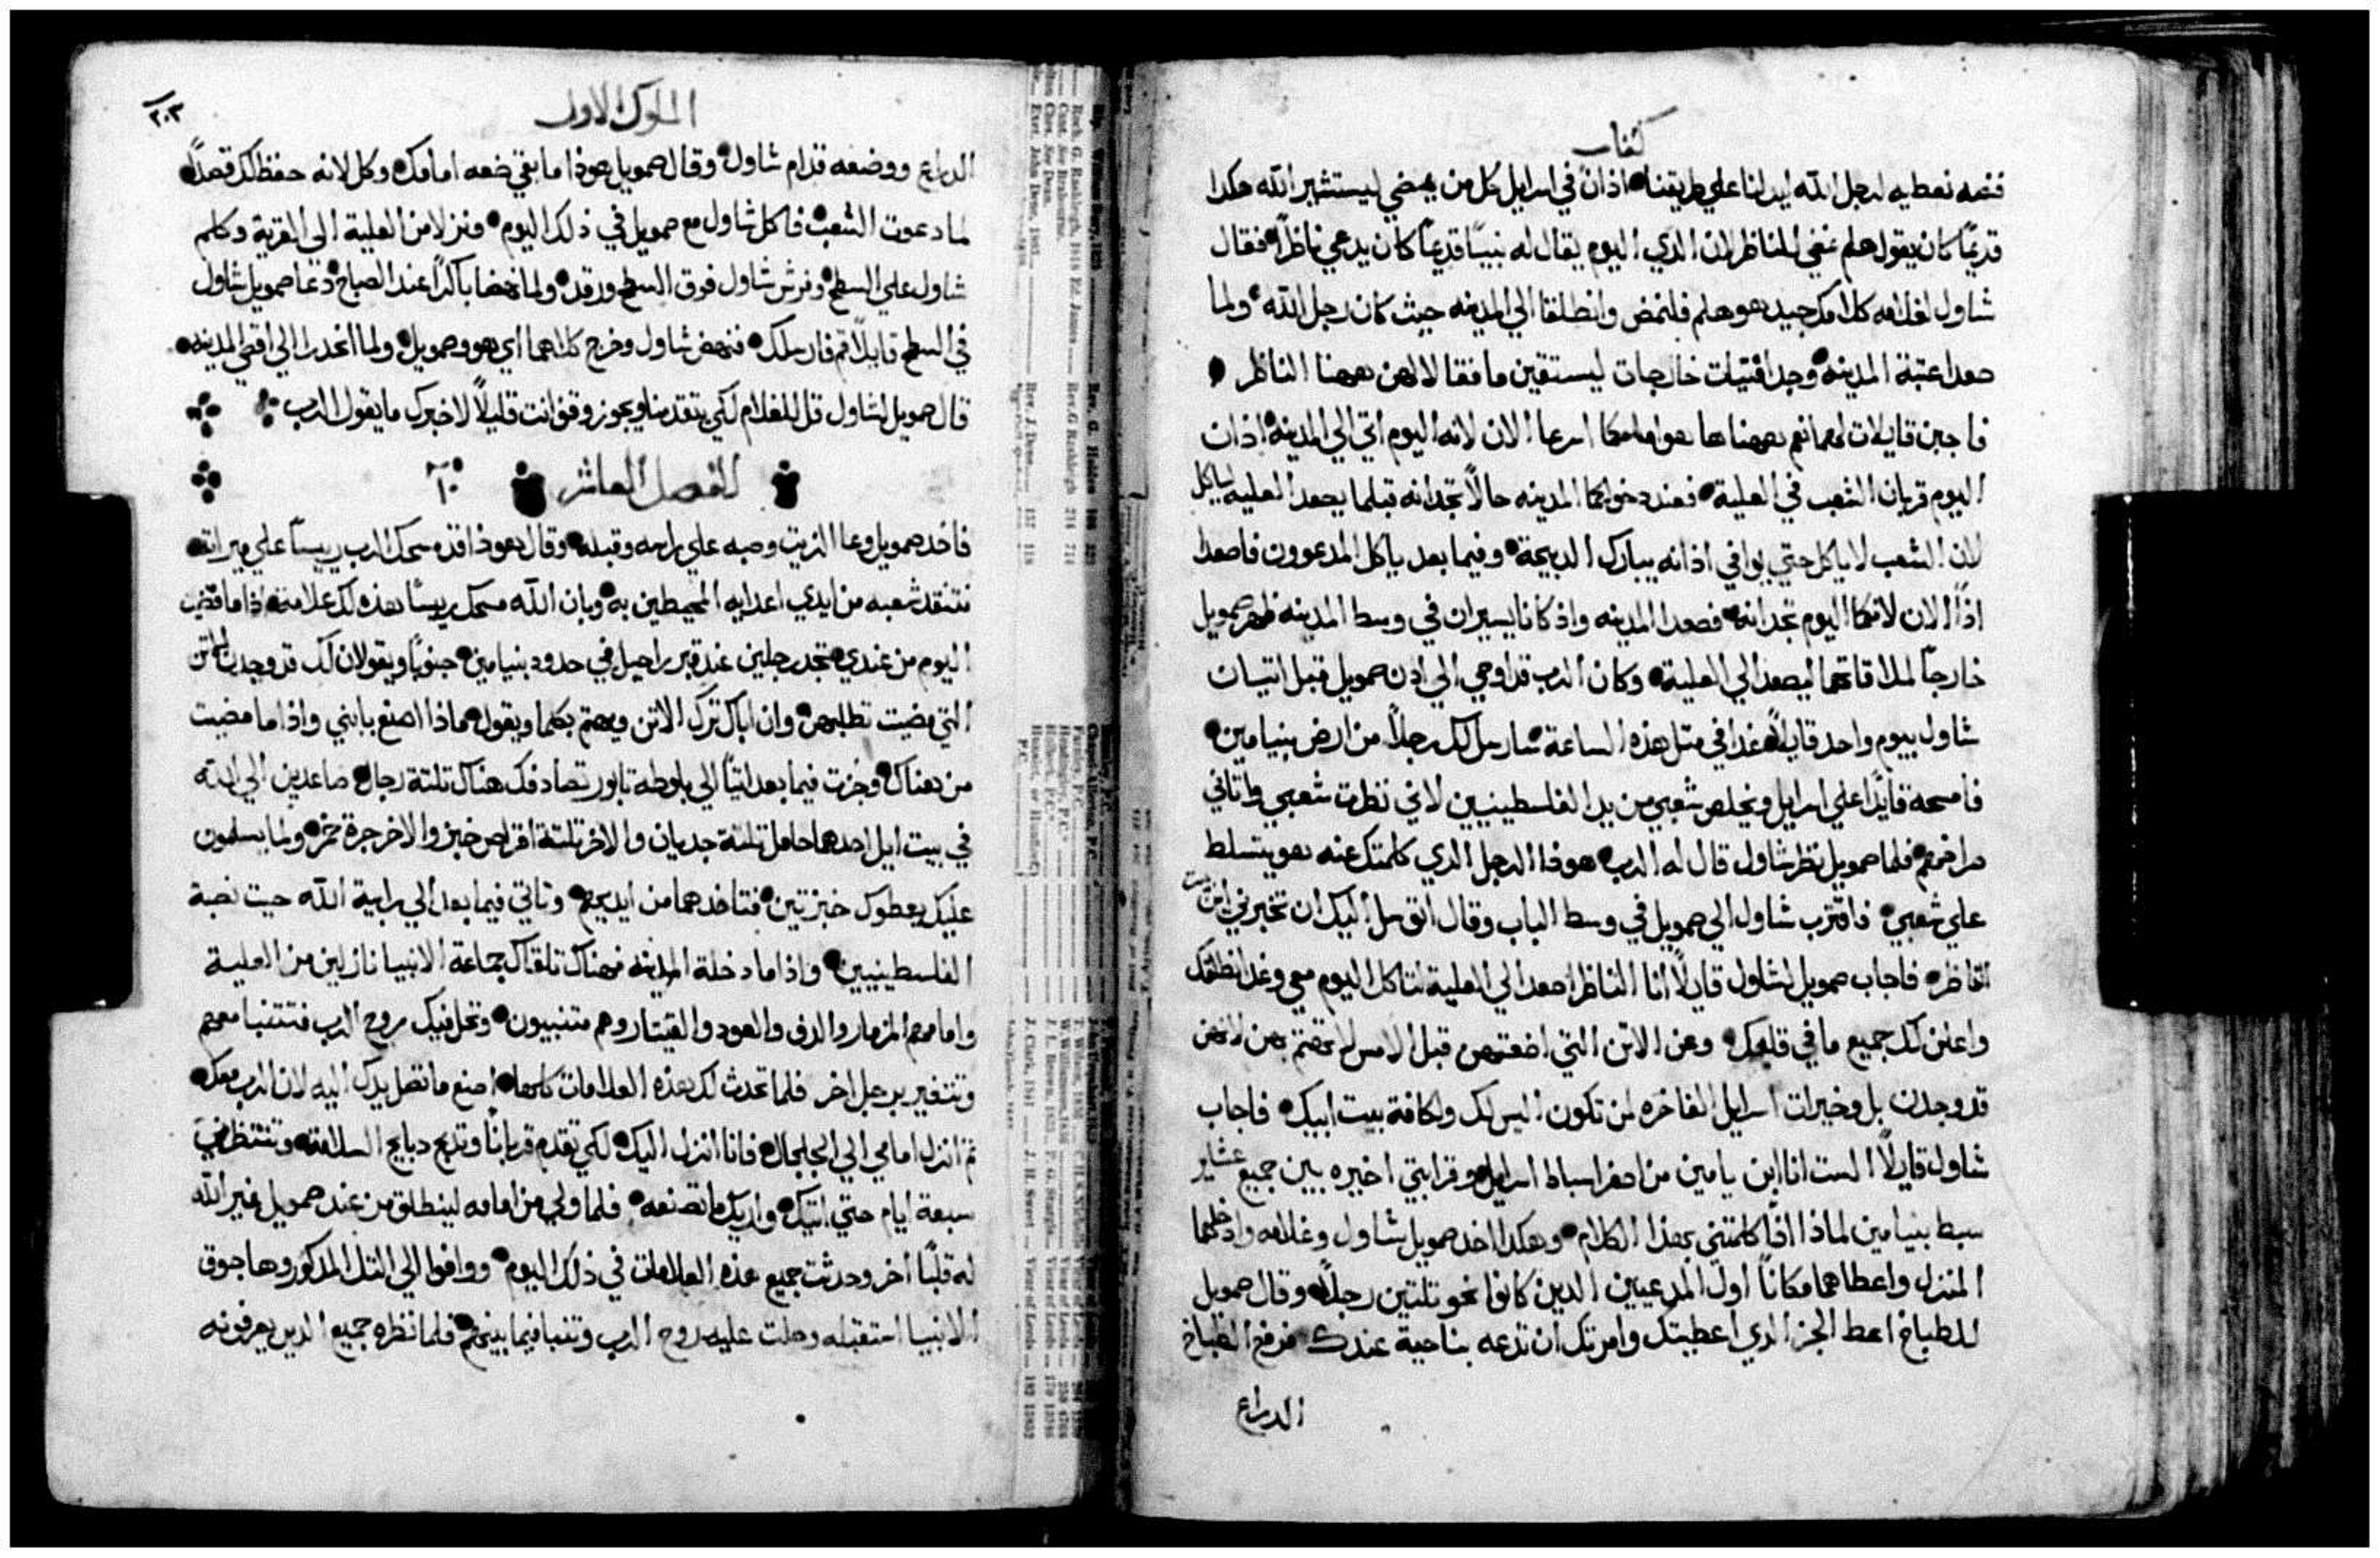 كتاب
فضه نعطيه لرجل الله ليدلنا علي طريقنا اذان في اسرايل كل من يمضي ليستشير الله هكدا
قديمًا كان يقول هلم نمضي للناظر لان الدي اليوم يقال له نبيًا قديمًا كان يدعي ناظرًا فقال
شاول لغلامه كلامك جيد هو هلم فلنمض وانطلقا الي المدينه حيث كان رجل الله ولما
صعدا عتبة المدينه وجدا فتيات خارجات ليستقين ما فقالا لهن هل ههنا الناظر
فاجبن قايلات لهما نعم ههنا ها هو امامكما اسرعا الان لانه اليوم اتي الي المدينه اذان
اليوم قربان الشعب في العلية فعند دخولكما المدينه حالًا تجدانه قبلما يصعد العليه لياكل
لان الشعب لا ياكل حتي يوافي اذانه يبارك الدبيحة وفيما بعد ياكل المدعوون فاصعدا
اذًا الان لانكما اليوم تجدانه فصعدا المدينه واذ كانا يسيران في وسط المدينه ظهر صمويل
خارجًا لملاقاتهما ليصعد الي العلية وكان الرب قد اوحي الي ادن صمويل قبل اتيان
شاول بيوم واحد قايلًا غدا في مثل هذه الساعة سارسل لك رجلًا من ارض بنيامين
فامسحه قايدًا علي اسرايل ويخلص شعبي من يد الفلسطينيين لاني نظرت شعبي واتاني
صراخهم فلما صمويل نظر شاول قال له الرب هوذا الرجل الدي كلمتك عنه هو يتسلط
علي شعبي فاقترب شاول الي صمويل في وسط الباب وقال اتوسل اليك ان تخبرني اين بيت
الناظر فاجاب صمويل لشاول قايلًا انا الناظر اصعد الي العلية لتاكل اليوم معي وغدا نطلقك
واعلن لك جميع ما في قلبك وعن الاتن التي اضعتهن قبل الامس لا تهتم بهن لانهن
قد وجدن بل وخيرات اسرايل الفاخره لمن تكون اليس لك ولكافة بيت ابيك فاجاب
شاول قايلًا الست انا ابن يامين من اصغر اسباط اسرايل وقرابتي اخيره بين جميع عشاير
سبط بنيامين لماذا اذًا كلمتني بهذا الكلام وهكدا اخد صمويل شاول وغلامه وادخلهما
المنزل واعطاهما مكانًا اول المدعيين الدين كانوا نحو تلتين رجلًا وقال صمويل
للطباخ اعط الجز الدي اعطيتك وامرتك ان تدعه بناحية عندك فرفع الطباخ
الدراع
الملوك الاول
٢٠٣
الدراع ووضعه قدام شاول وقال صمويل هوذا ما بقي ضعه امامك وكل لانه حفظ لك قصدًا
لما دعوت الشعب فاكل شاول مع صمويل في ذلك اليوم ونزلا من العلية الي القرية وكلم
شاول علي السطح وفرش شاول فوق السطح ورقد ولما نهضا باكرًا عند الصباح دعا صمويل شاول
في السطح قايلًا قم فارسلك فنهض شاول وخرج كلاهما اي هو وصمويل ولما انحدرا الي اقصي المدينه
قال صمويل لشاول قل للغلام لكي يتقدمنا ويجوز وقف انت قليلًا لاخبرك ما يقول الرب
الفصل العاشر ١٠
فاخد صمويل وعا الزيت وصبه علي راسه وقبله وقال هوذا قد مسحك الرب رييسًا علي ميراته
فتنقد شعبه من ايدي اعدايه المحيطين به وبان الله مسحك رييسًا هذه لك علامة اذا ما مضيت
اليوم من عندي تجد رجلين عند قبر راحيل في حدود بنيامين جنوبًا ويقولان لك قد وجدت الاتن
التي مضيت تطلبهن وان اباك ترك الاتن ويهتم بكما ويقول ماذا اصنع بابني واذا ما مضيت
من هناك وجزت فيما بعد اتيًا الي بلوطه تابور تصادفك هناك تلتة رجال صاعدين الي الله
في بيت ايل احدهما حامل تلتة جديان والاخر تلتة اقراص خبز والاخر جرة خمر ولما يسلمون
عليك يعطوك خبزتين فتاخدهما من ايديهم وتاتي فيما بعد الي رابية الله حيت نصبة
الفلسطينيين واذا ما دخلة المدينه فهناك تلقاك جماعة الانبيا نازلين من العلية
وامامهم المزمار والدف والعود والقيتار وهم متنبيون وتحل فيك روح الرب فتتنبا معهم
وتتغير برجل اخر فلما تحدث لك هذه العلامات كلها اصنع ما تصل يدك اليه لان الرب معك
ثم انزل امامي الي الجلجال فانا انزل اليك لكي تقدم قربانًا وتدبح دبايح السلامة وتنتظرني
سبعة ايام حتي اتيك واريك ما تصنعه فلما ولي من امامه لينطلق من عند صمويل غير الله
له قلبًا اخر وحدثت جميع هذه العلامات في ذلك اليوم ووافوا الي التل المدكور وها جوق
الانبيا استقبله وحلت عليه روح الرب وتنبا فيما بينهم فلما نظره جميع الدين يعرفونه